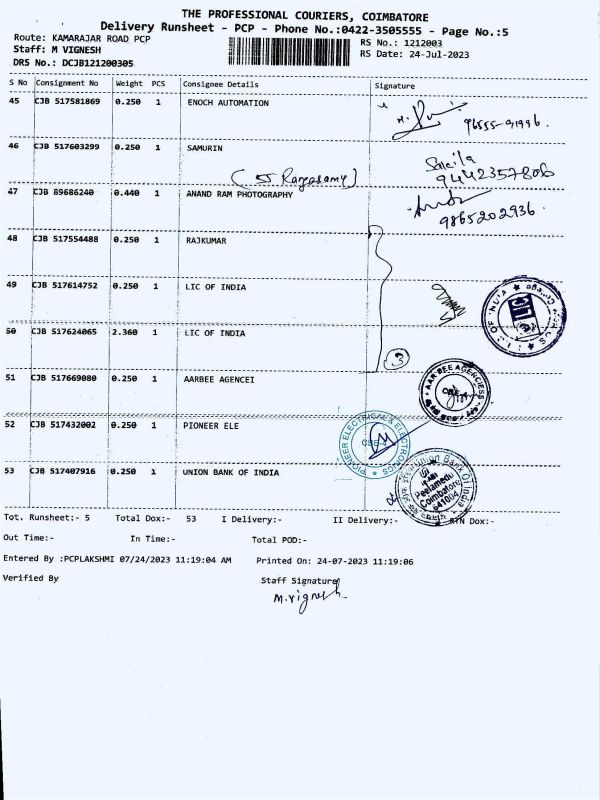 THE PROFESSIONAL COURIERS, COIMBATORE
Delivery Runsheet - PCP - Phone No.:0422-3505555 - Page No.:5
Route: KAMARAJAR ROAD PCP RS No.: 1212003
Staff: M VIGNESH RS Date: 24-Jul-2023
DRS No.: DCJB121200305
S No Consignment No Weight PCS Consignee Details Signature
45 CJB 517581869 0.250 1 ENOCH AUTOMATION
96555-91996.
46 CJB 517603299 0.250 1 SAMURIN
9442357806
(SS Rangasamy)
47 CJB 89686240 0.440 1 ANAND RAM PHOTOGRAPHY
9865202936.
48 CJB 517554488 0.250 1 RAJKUMAR
49 CJB 517614752 0.250 1 LIC OF INDIA
50 CJB 517624065 2.360 1 LIC OF INDIA
3
51 CJB 517669080 0.250 1 AARBEE AGENCEI
AAR BEE AGENCIESS
52 CJB 517432002 0.250 1 PIONEER ELE
PIONEER ELECTRICAL & ELECTRONICS
53 CJB 517407916 0.250 1 UNION BANK OF INDIA
Union Bank Of India
Peelamedu
Coimbatore
641004
Tot. Runsheet:- 5 Total Dox:- 53 I Delivery:- II Delivery:- RTN Dox:-
Out Time:- In Time:- Total POD:-
Entered By :PCPLAKSHMI 07/24/2023 11:19:04 AM Printed On: 24-07-2023 11:19:06
Verified By Staff Signature
M.Vignesh